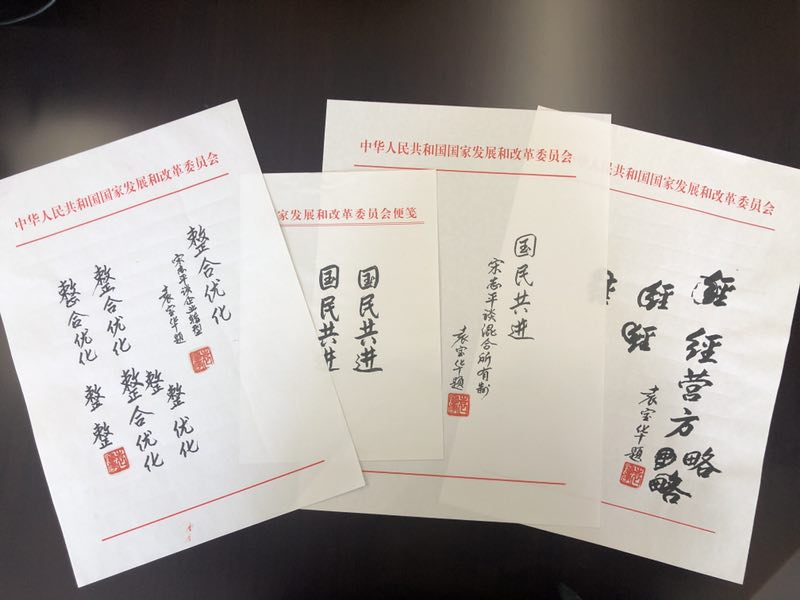 中华人民共和国国家发展和改革委员会
整合优化
宋志平谈企业转型
袁宝华题
整合优化
整合优化
整
整
整合优化
整
整优化
家发展和改革委员会便笺
国民共进
国民共进
中华人民共和国国家发展和改革委员会
国民共进
宋志平谈混合所有制
袁宝华题
民共和国国家发展和改革委员会
经营方略
袁宝华题
略